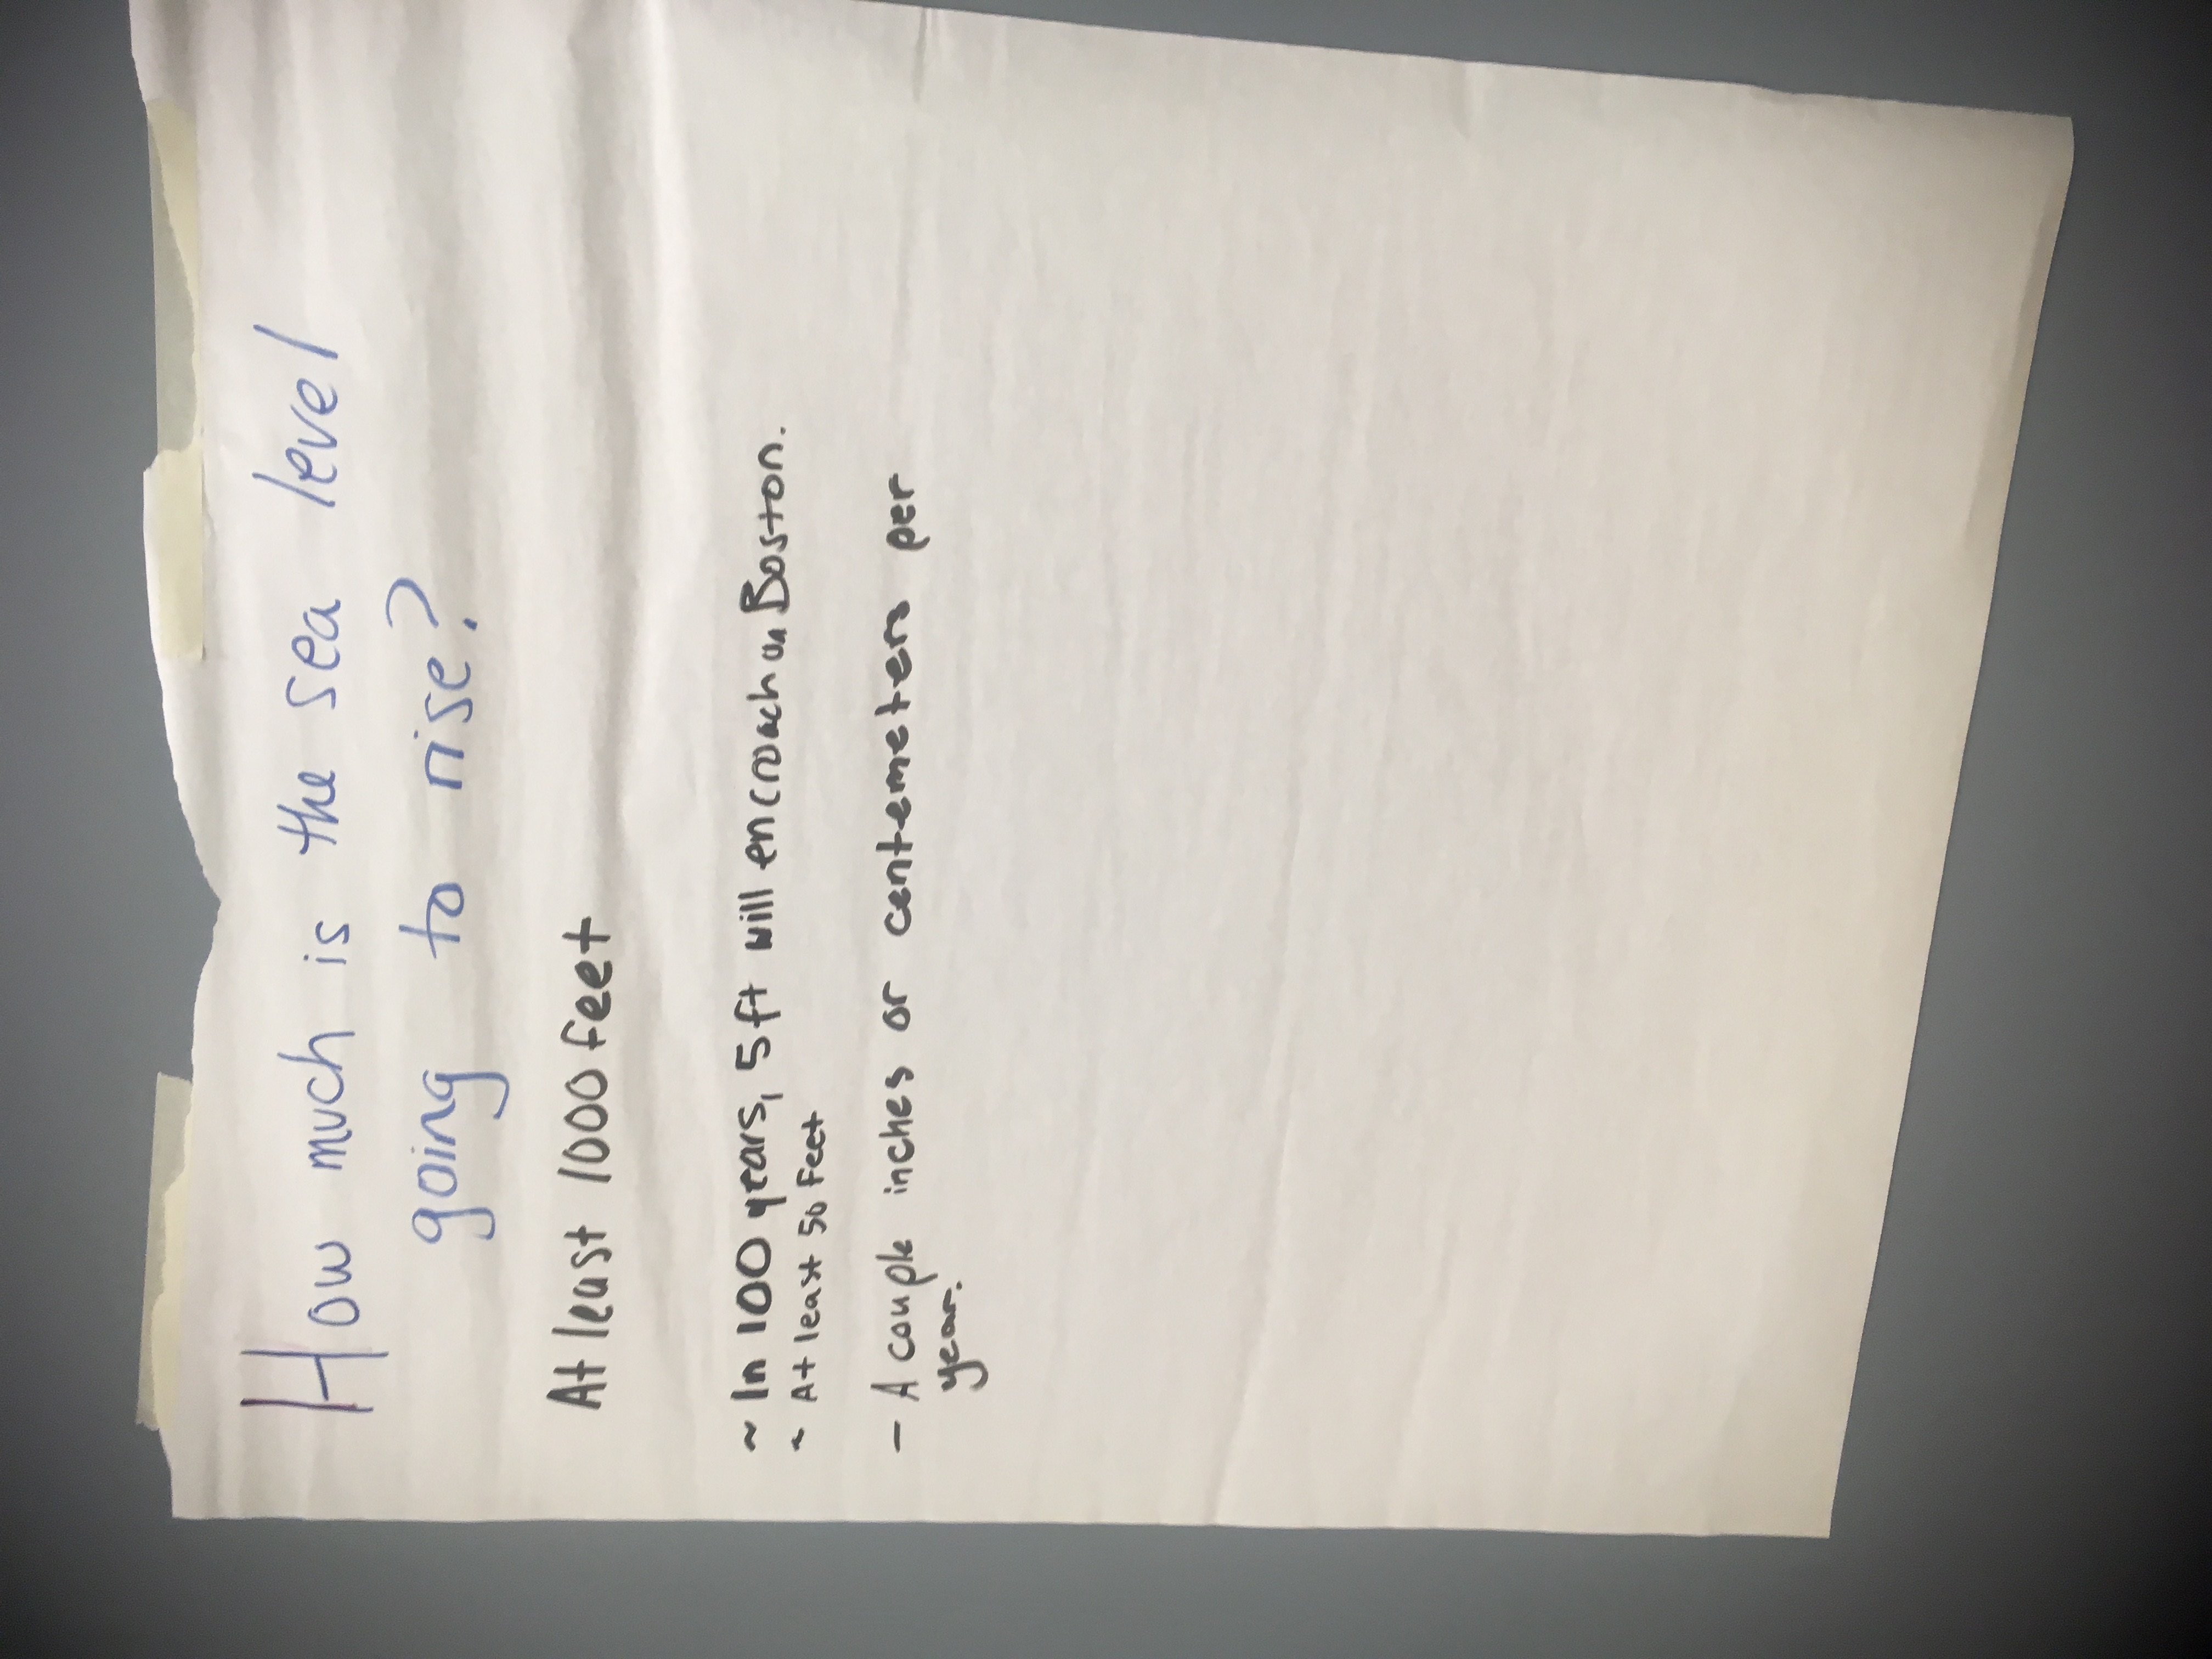 How much is the sea level
going to rise?
At least 1000 feet
~ In 100 years, 5ft will encroach on Boston.
~ At least 50 Feet
- A couple inches or centemeters per
year.